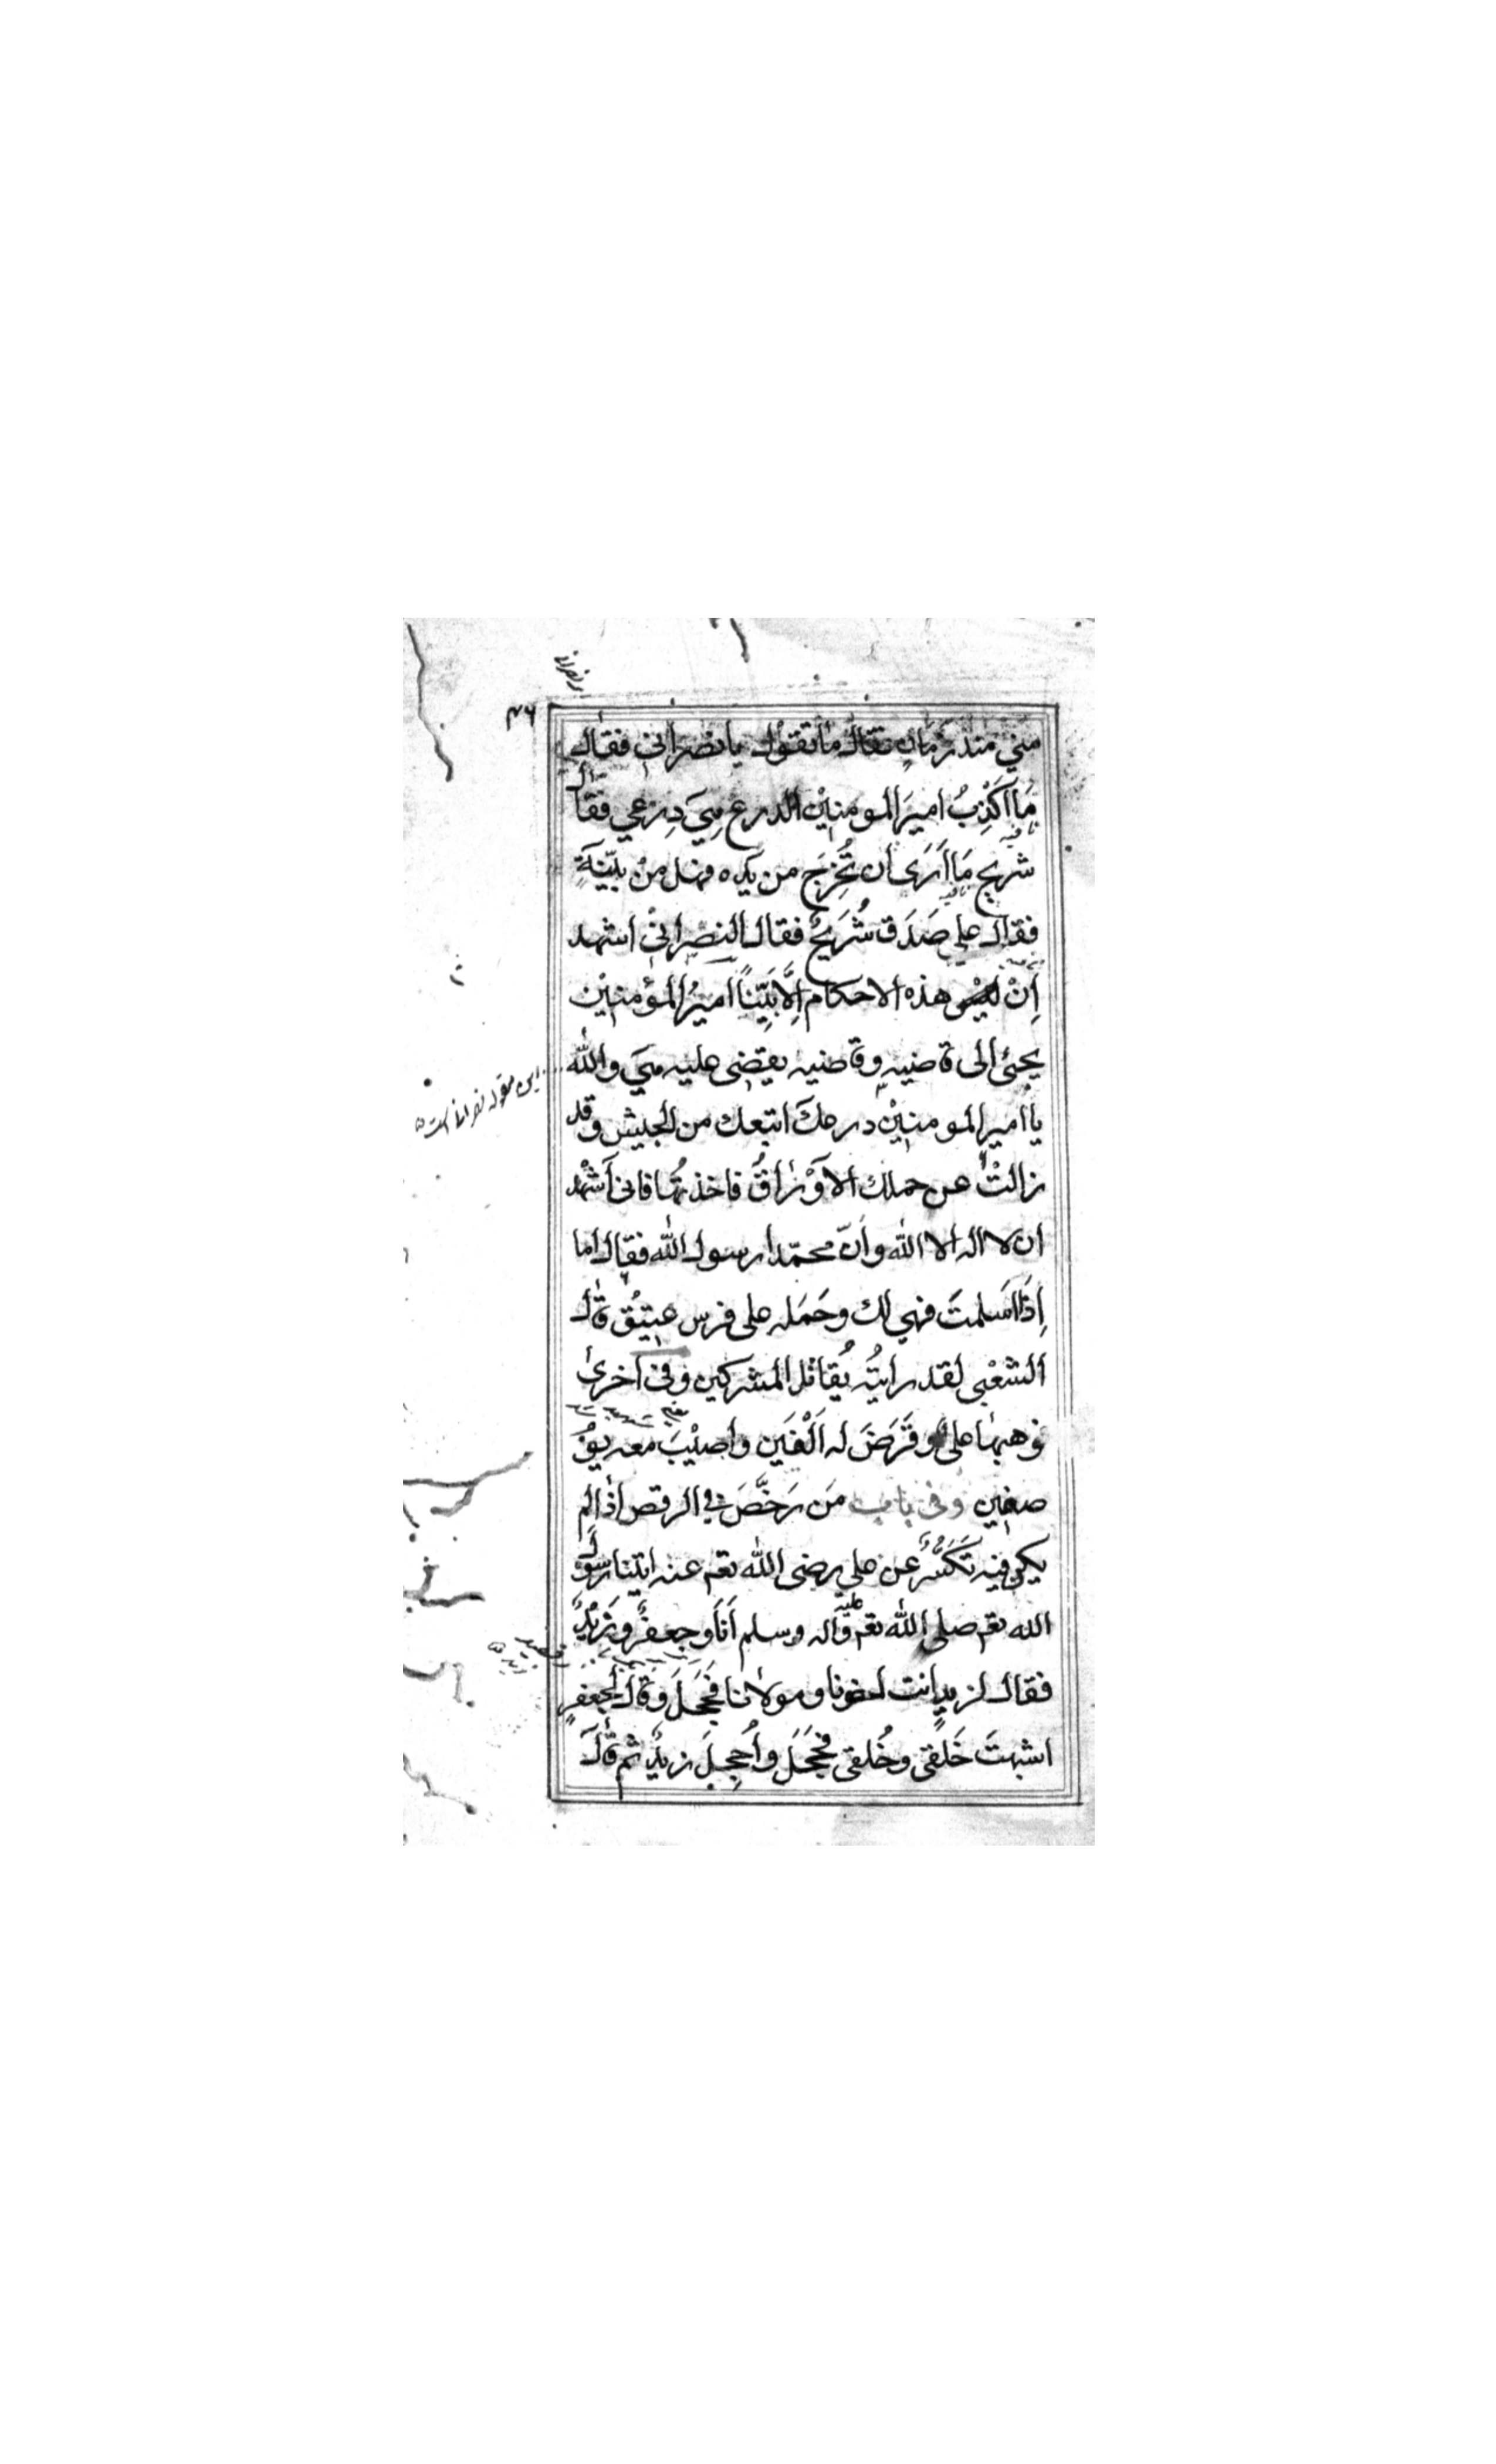 ۴۶
مني منذ زمان فقال ما تقول يا نصراني فقال
مَا اُكَذِّبُ امير المومنين الدرع هيَ دِرعي فقال
شريح مَا اَرَى ان تُخْرَجَ من يَدِه فهل مِنْ بَيِّنَةٍ
فقال علي صَدَقَ شُرَيحٌ فقال النصراني اشهد
اِنْ هذه الاحكام اِلَّا بَيِّناً امير المؤمنين
يجئ الى قاضيه وقاضيه يقضى عليه هيَ والله
يا امير المومنين درعك اتبعك من الجيش وقد
زالتْ عن جملك الاَوْرَاقُ فاخذتُها فانى اَشْهَد
ان لا اله الا الله وانّ محمّدا رسول الله فقال اما
اِذَا اَسلمتَ فهي لك وحَمَله على فرس عَتِيْقٍ قال
الشعْبي لقد رايتُه يُقاتل المشركين وفى اخرىٰ
فوهبها علىٌ وفَرَضَ له اَلْفَين واُصيْبَ معه يوم
صفين وفى باب مَن رَخَّصَ في الرقص اذا لم
يكن فيه تَكَسُّرٌ عن علي رضى الله تعم عنه اتينا رسول
الله تعم صلى الله تعم عليه واله وسلم اَنَا وجعفرٌ وزَيْدٌ
فقال لزيدٍ انت اخونا ومولانا فَحَجَلَ وقال لجعفرٍ
اشبهتَ خَلْقي وخُلقي فَحَجَلَ وأُحجِلَ زيدٌ ثم قالَ